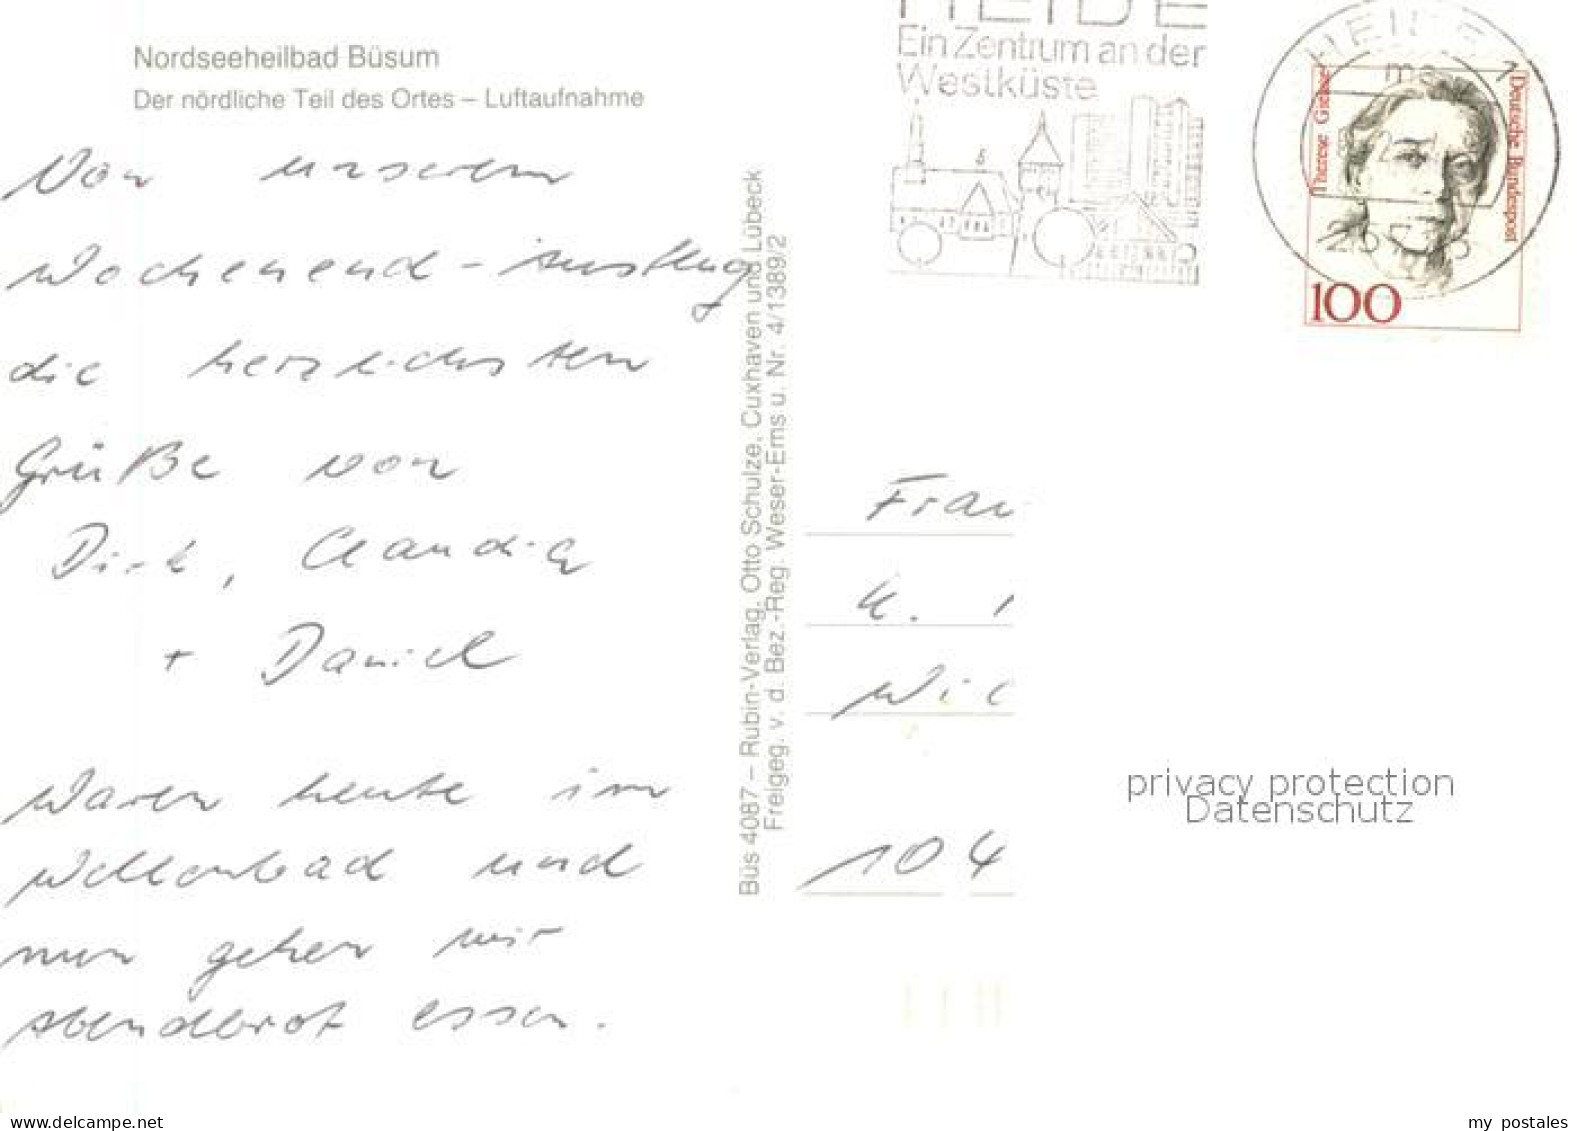 Nordseeheilbad Büsum
Der nördliche Teil des Ortes – Luftaufnahme
Von unserem
Wochenend-Ausflug
die herzlichsten
Grüße von
Dirk, Claudia
+ Daniel
Waren heute im
Wellenbad und
nun gehen wir
Abendbrot essen.
Büs 4087 – Rubin-Verlag, Otto Schulze, Cuxhaven und Lübeck
Freigeg. v. d. Bez.-Reg. Weser-Ems u. Nr. 4/1389/2
HEIDE
Ein Zentrum an der
Westküste
HEIDE
1
me
Therese Giehse
Deutsche Bundespost
100
Frau
104
privacy protection
Datenschutz
www.delcampe.net
my postales